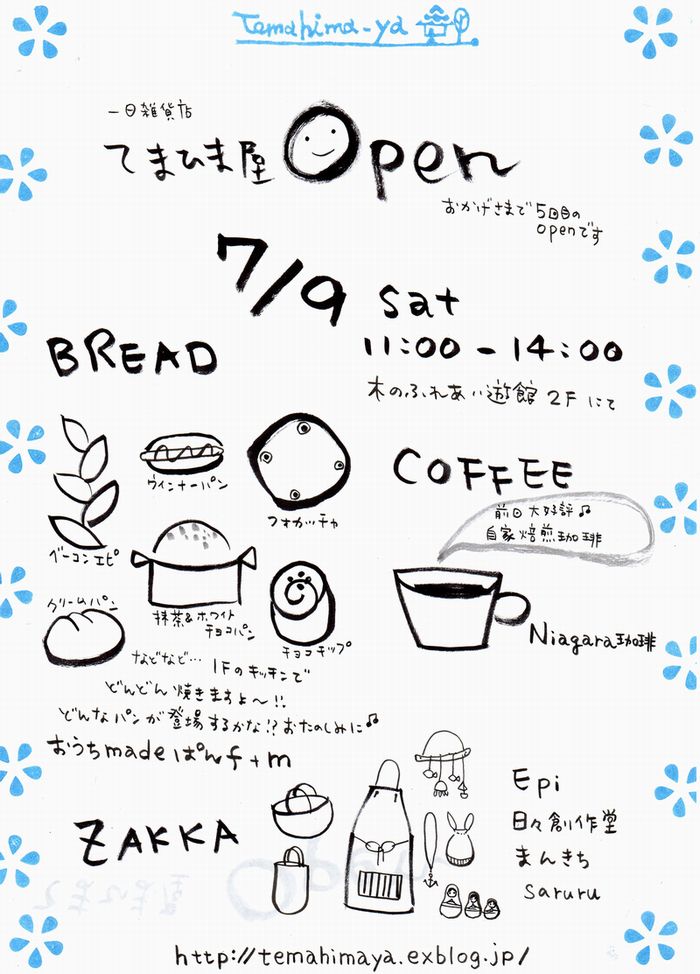 Temahima-ya
一日雑貨店
てまひま屋 Open
おかげさまで5回目の
openです
7/9 sat
11:00-14:00
木のふれあい遊館 2Fにて
BREAD
ウインナーパン
フォカッチャ
ベーコンエピ
抹茶&ホワイト
チョコパン
クリームパン
チョコチップ
などなど… 1Fのキッチンで
どんどん焼きますよ〜!!
どんなパンが登場するかな!?おたのしみに♫
おうちmadeぱんf+m
COFFEE
前回大好評♫
自家焙煎珈琲
Niagara珈琲
ZAKKA
Epi
日々創作堂
まんきち
saruru
http://temahimaya.exblog.jp/